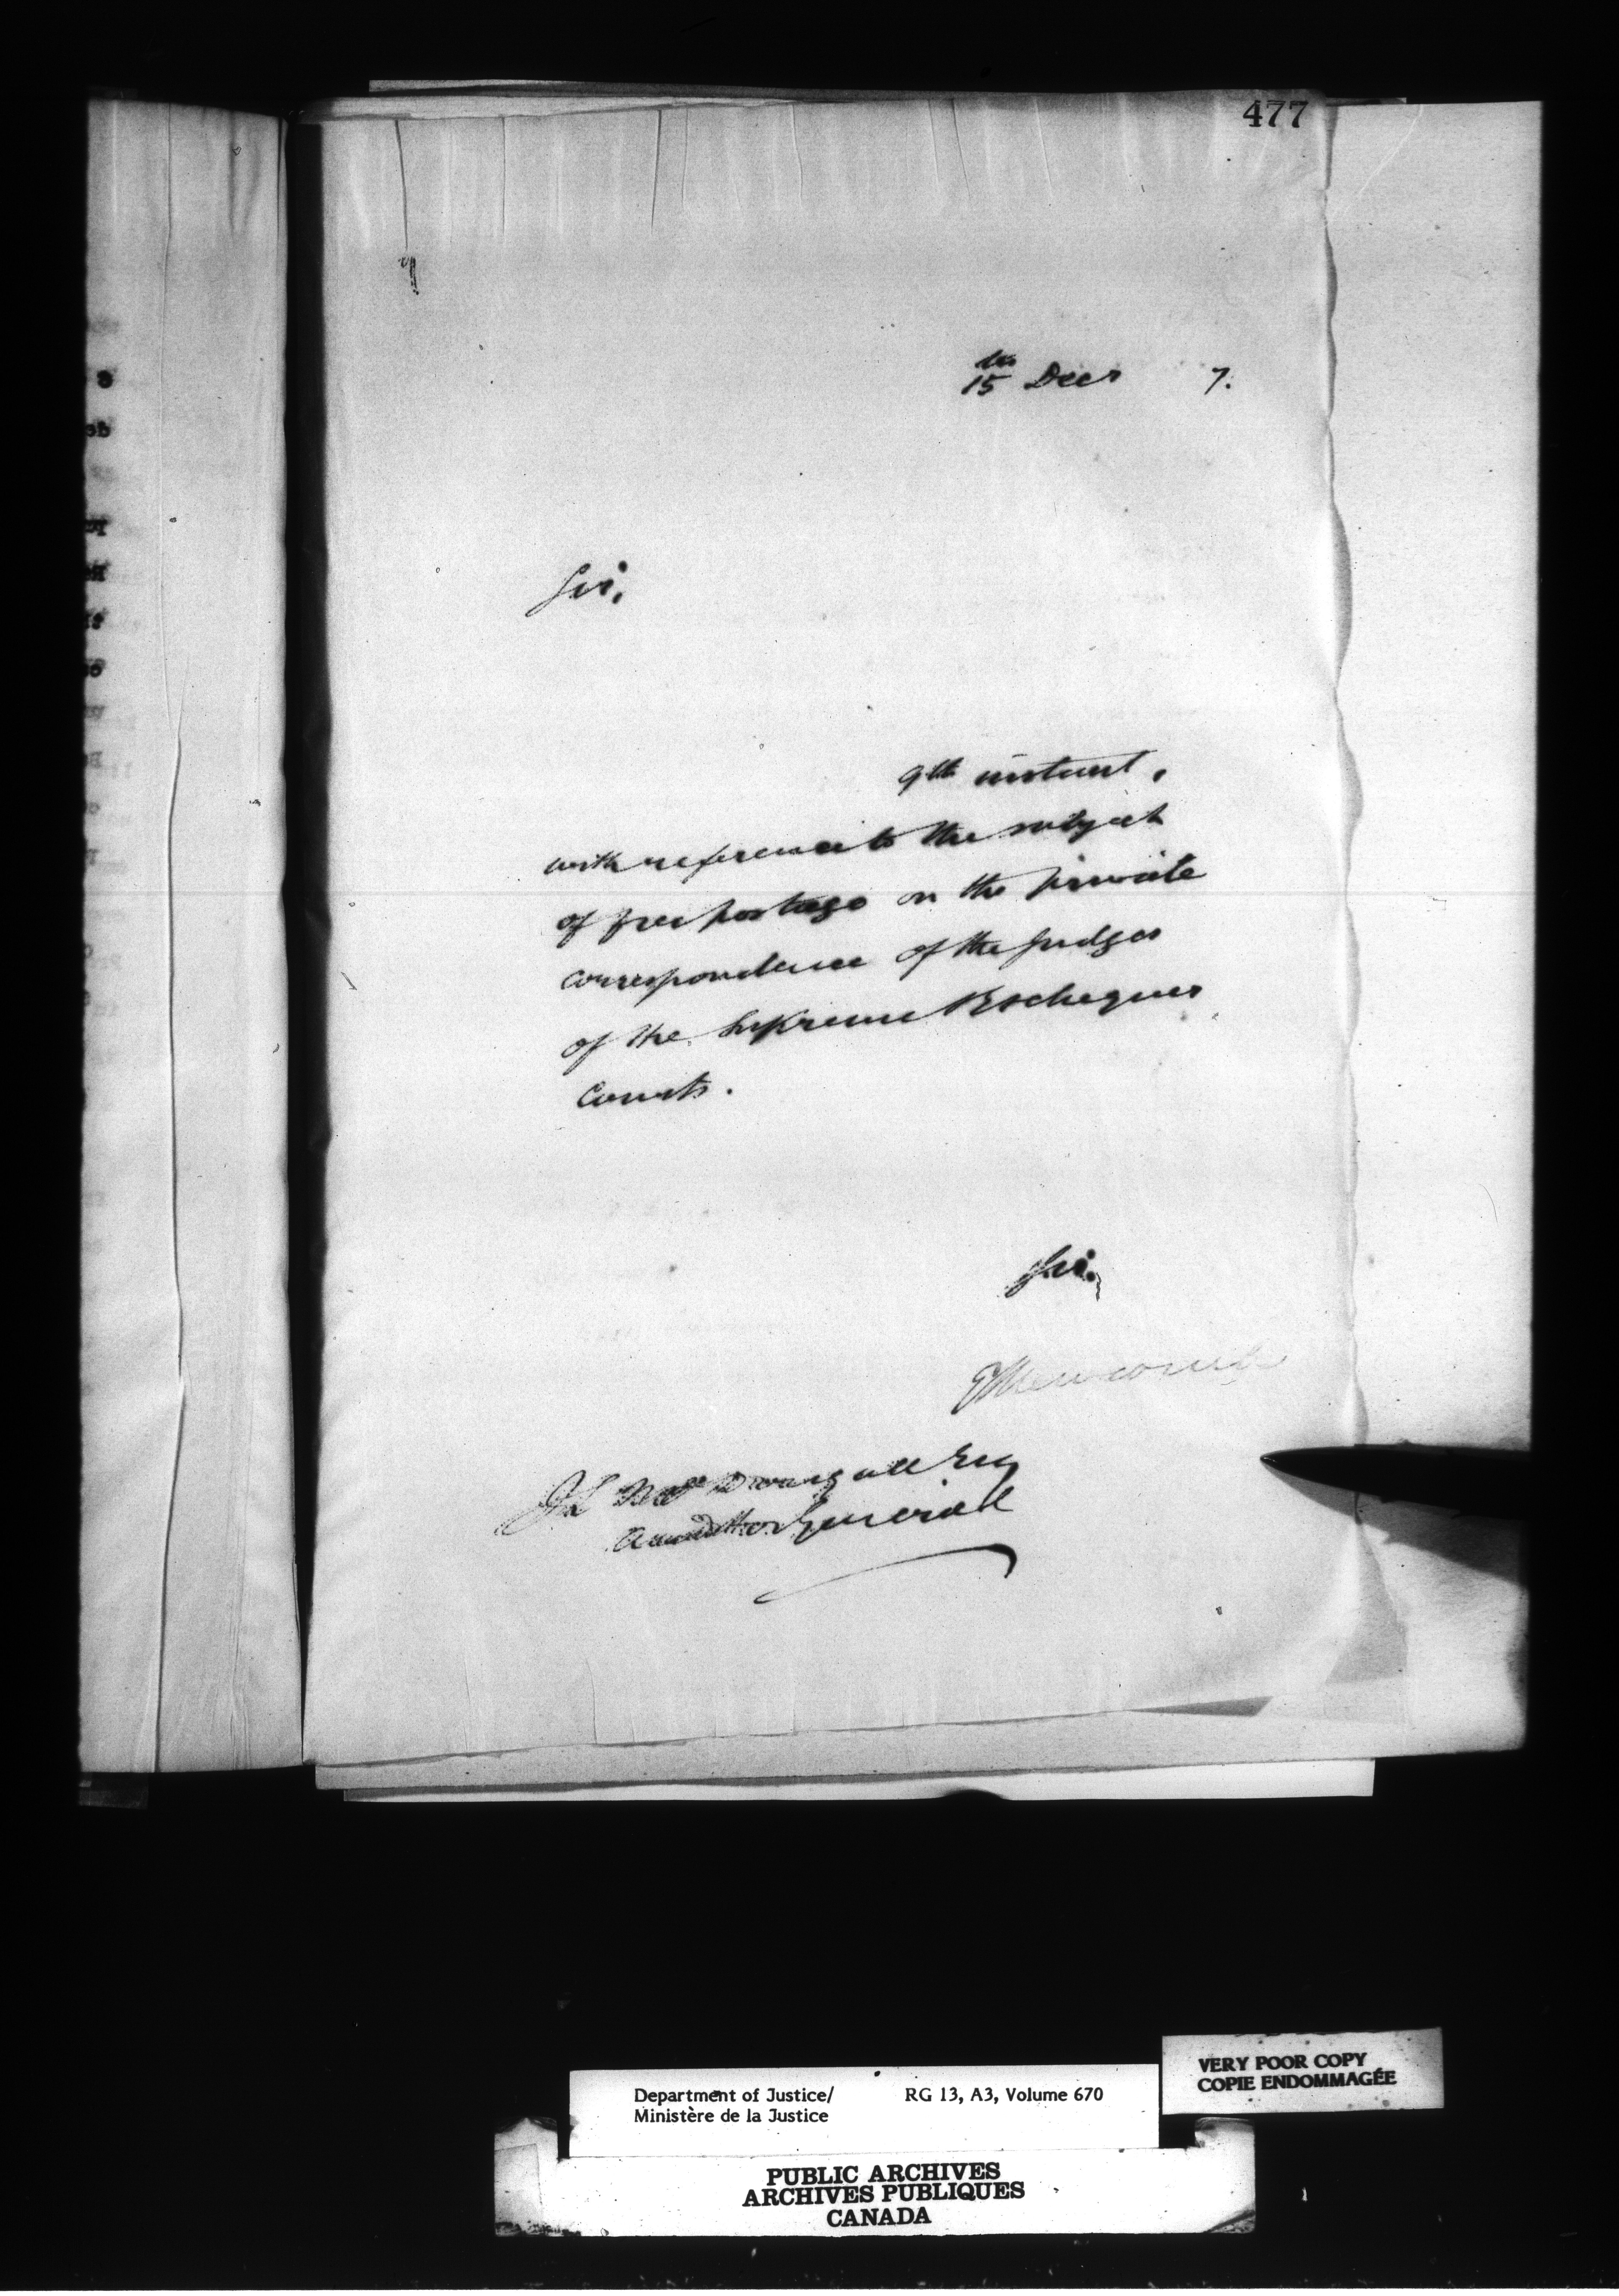 477
15th Decr 7.
Sir,
9th instant,
with reference to the subject
of free postage on the private
correspondence of the judges
of the Supreme & Exchequer
Courts.
Sir,
Newcombe
J L McDougall Esq
Auditor General
VERY POOR COPY
COPIE ENDOMMAGÉE
Department of Justice/ RG 13, A3, Volume 670
Ministère de la Justice
PUBLIC ARCHIVES
ARCHIVES PUBLIQUES
CANADA